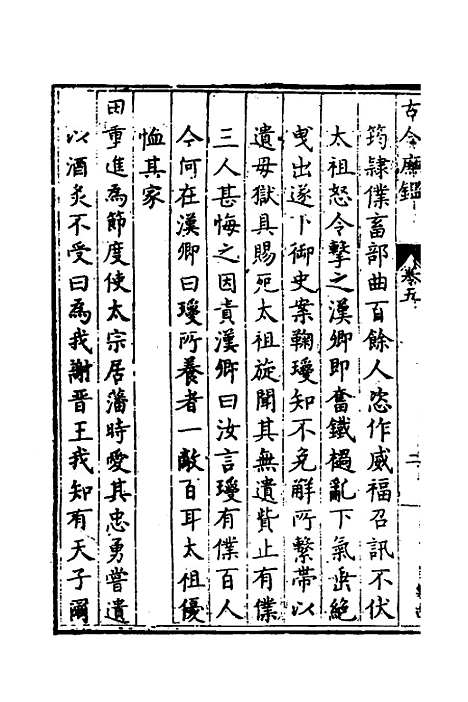 古今廉鑑 卷五 二
筠隷僕畜部曲百餘人恣作威福召訊不伏
太祖怒令擊之漢卿即奮鐵檛亂下氣垂絕
曳出遂卜御史案鞠瓊知不免解所繫帶以
遺母獄具賜死太祖旋聞其無遺貲止有僕
三人甚悔之因責漢卿曰汝言瓊有僕百人
今何在漢卿曰瓊所養者一敵百耳太祖優
恤其家
田重進為節度使太宗居藩時愛其忠勇嘗遺
以酒炙不受曰為我謝晉王我知有天子爾